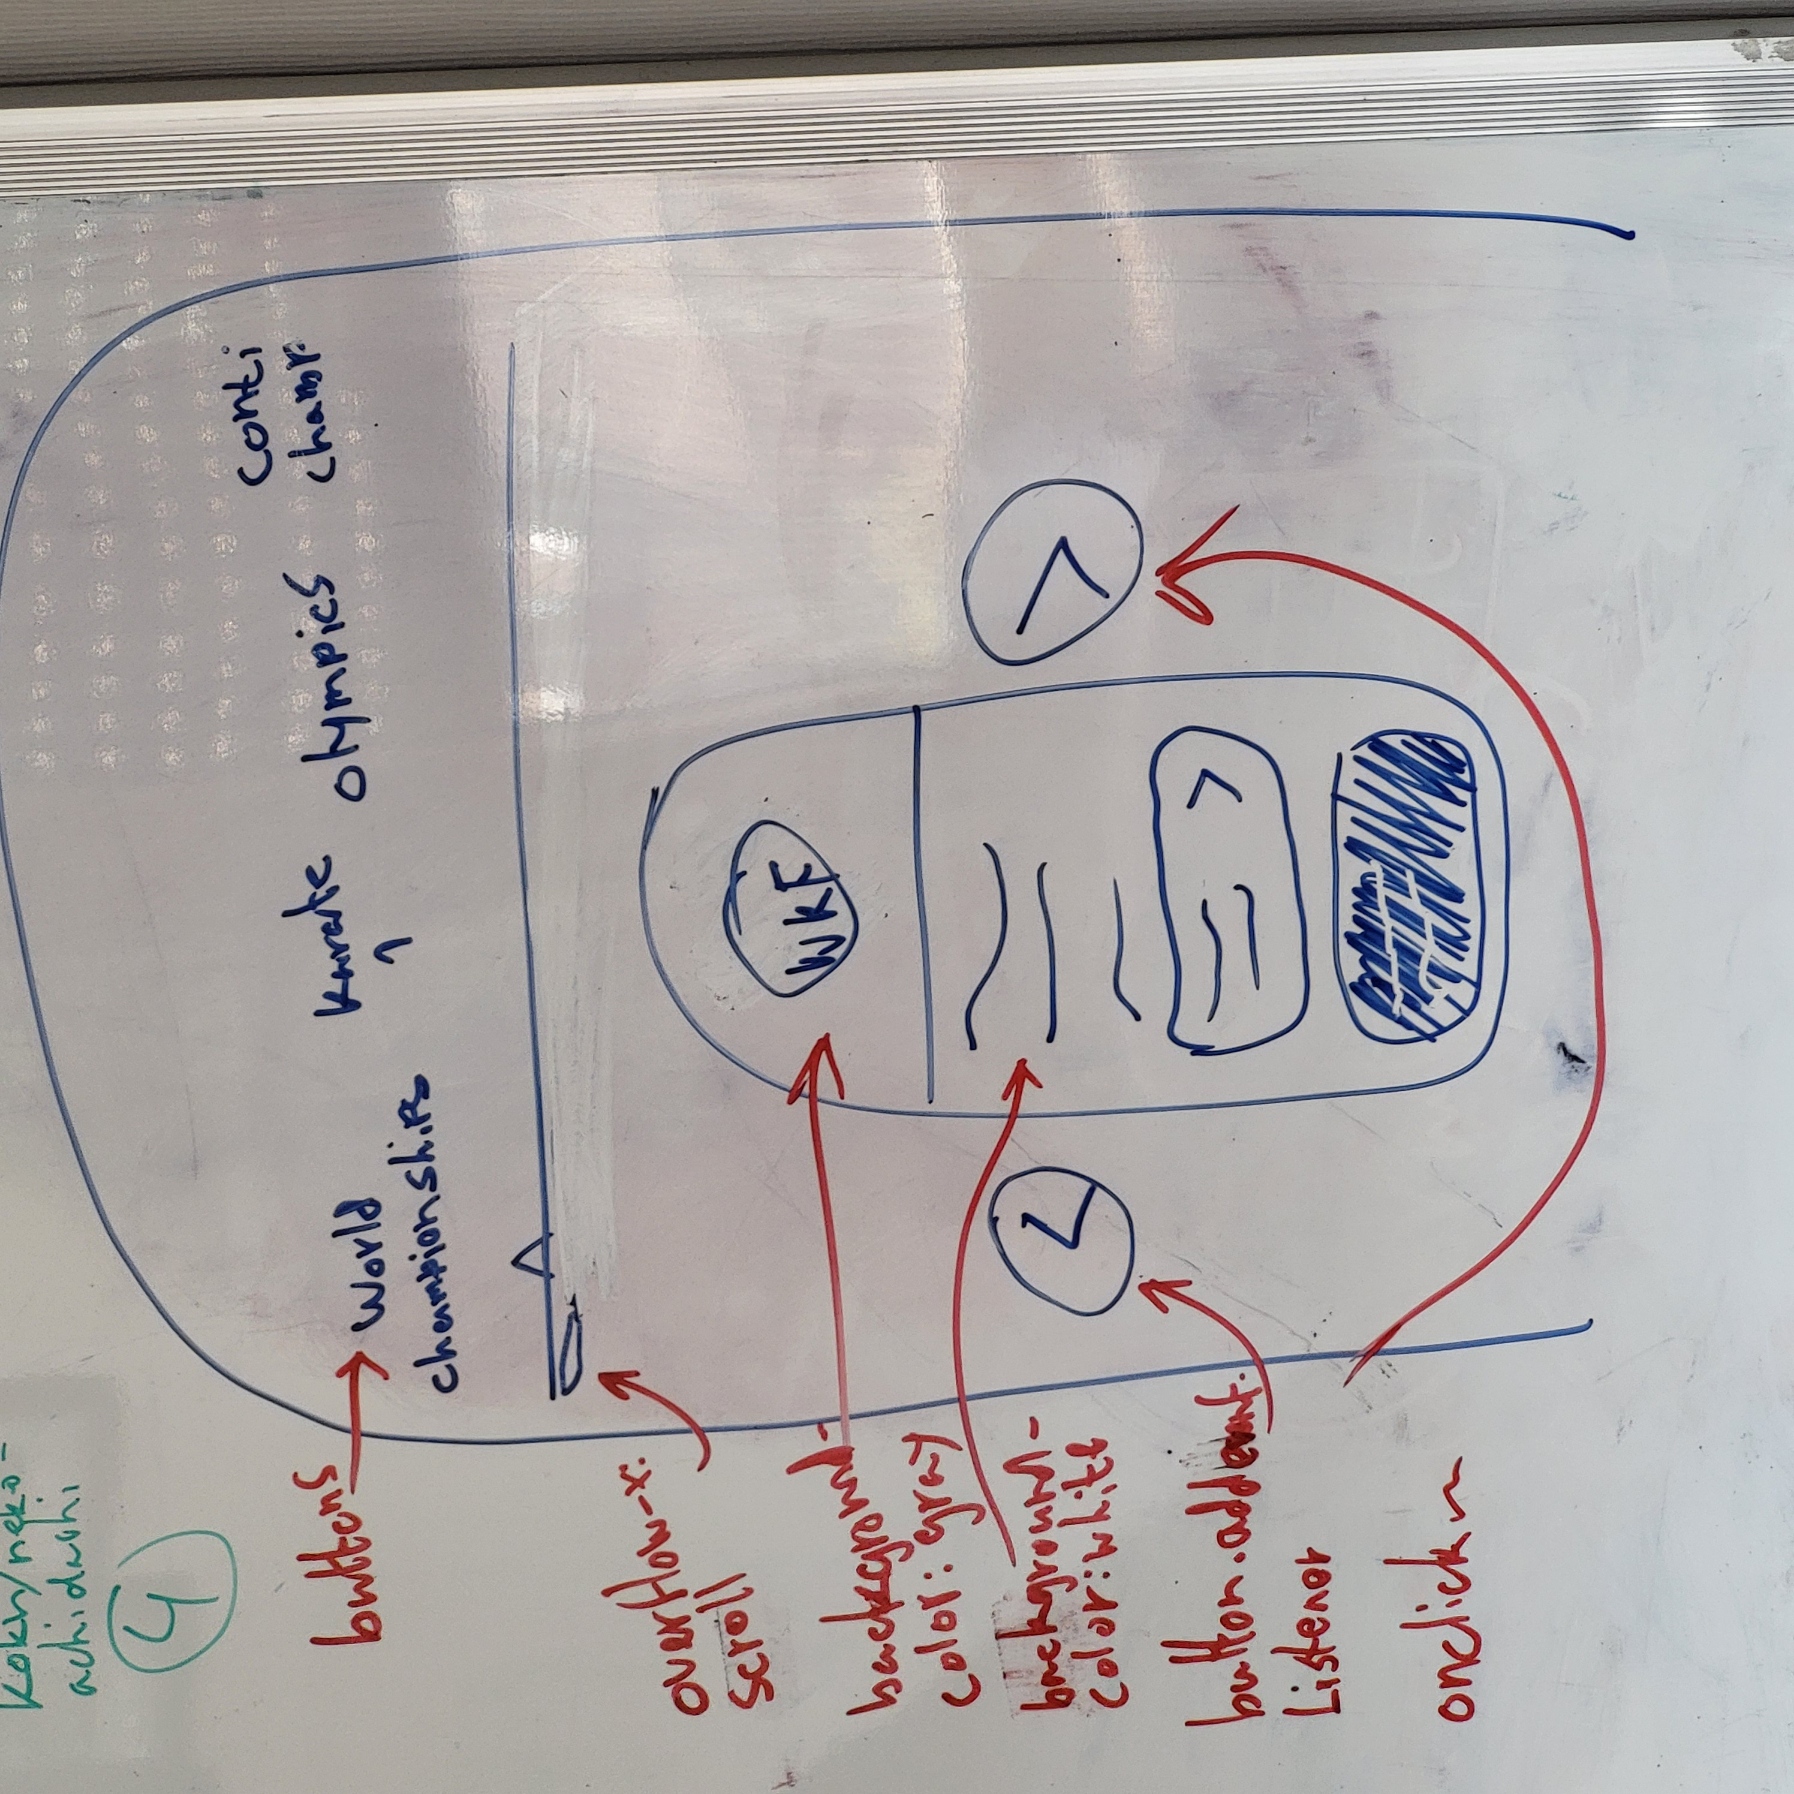 koku/neko-
achidachi
4
buttons
World
championships
karate
1
olympics
conti
champ.
overflow-x:
scroll
WKF
background-
color: gray
background-
color: white
<
>
button.addevent.
Listenor
>
onclick